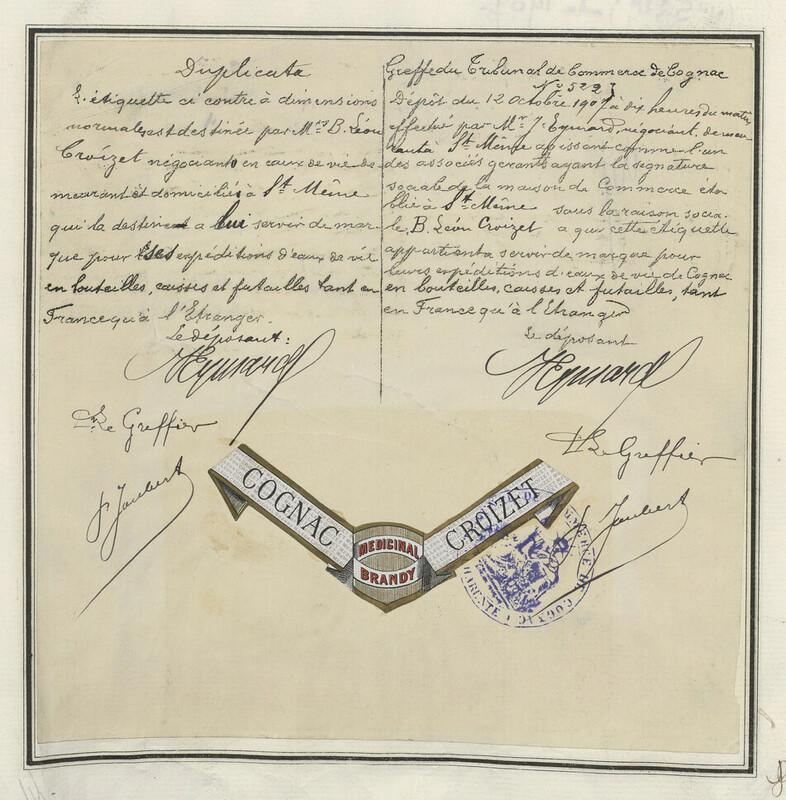 Duplicata
L'étiquette ci contre à dimensions
normales est destinée par Mrs B. Léon
Croizet négociants en eaux de vie de-
meurant et domiciliés à St Même
qui la destinent a lui servir de mar-
que pour ses expéditions d'eaux de vie
en bouteilles, caisses et futailles tant en
France qu'à l'Etranger.
Le déposant:
JEymard
Le Greffier
Joubert
Greffe du Tribunal de Commerce de Cognac
No 522
Dépôt du 12 Octobre 1907 à dix heures du matin
effectué par Mr J. Eymard, négociant, demeu-
rant à St Même agissant comme l'un
des associés gérants ayant la signature
sociale de la maison de Commerce éta-
blie à St Même sous la raison socia-
le, B. Léon Croizet a qui cette étiquette
appartient a servir de marque pour
leurs expéditions d'eaux de vie de Cognac
en bouteilles, caisses et futailles, tant
en France qu'à l'Etranger
Le déposant
JEymard
Le Greffier
Joubert
COGNAC CROIZET
MEDICINAL
BRANDY
COMMERCE DE COGNAC CHARENTE